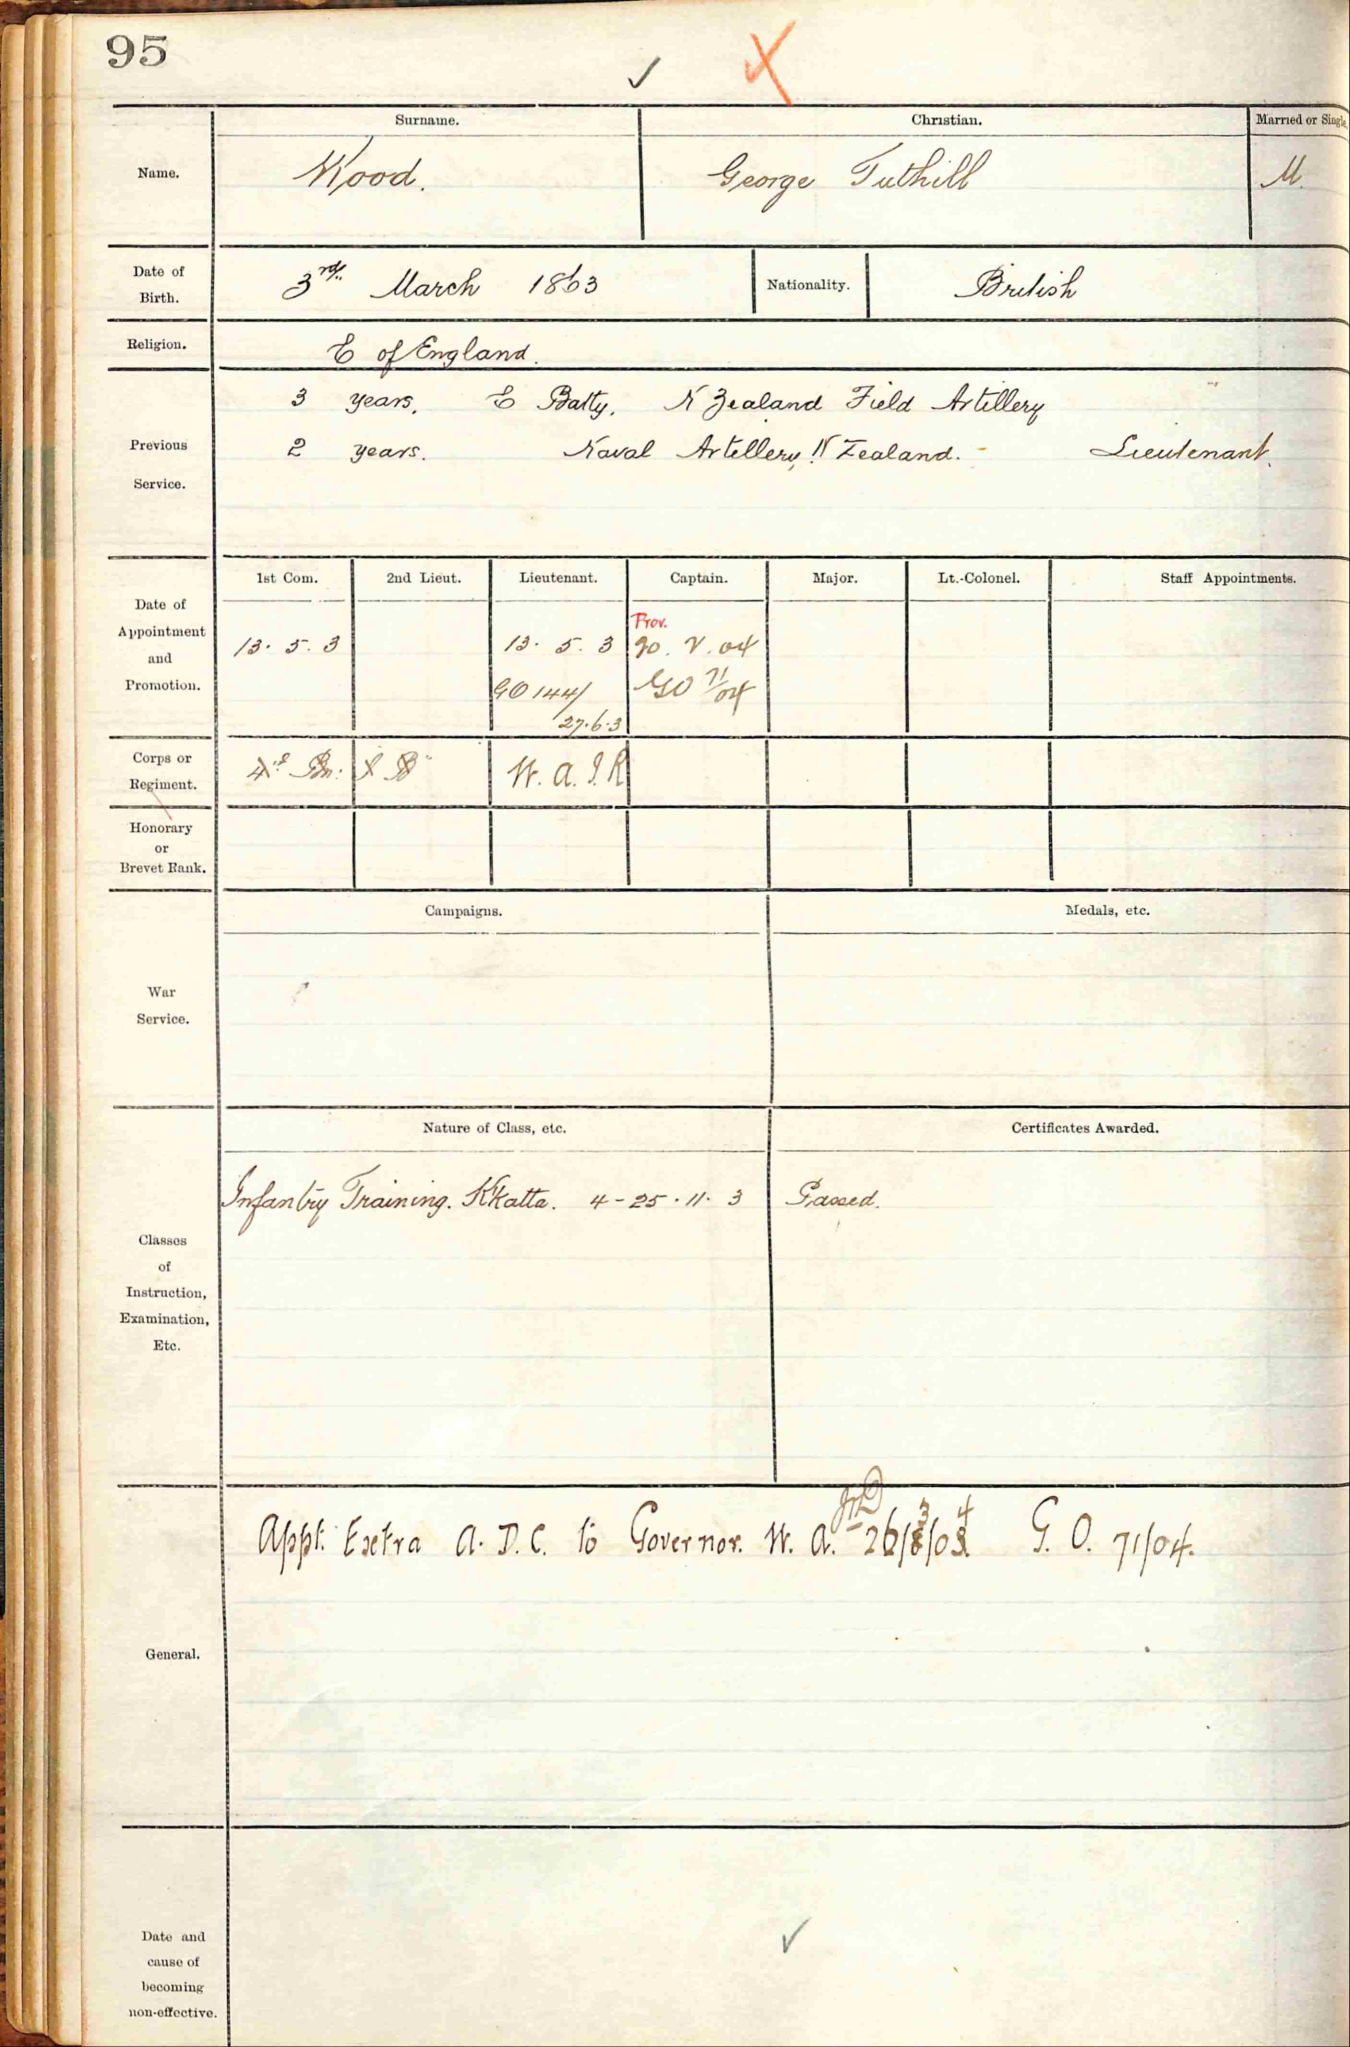 95
Surname. Christian. Married or Single.
Name. Wood. George Tuthill M.
Date of Birth. 3rd. March 1863 Nationality. British
Religion. C of England.
3 years. E Batty. N Zealand Field Artillery
Previous Service. 2 years. Naval Artillery, N Zealand. - Lieutenant.
1st Com. 2nd Lieut. Lieutenant. Captain. Major. Lt.-Colonel. Staff Appointments.
Date of Appointment and Promotion.
Prov.
13. 5. 3 13. 5. 3 . 04
GO 144/ GO 71/04
27.6.3
Corps or Regiment. W. A. I. R
Honorary or Brevet Rank.
Campaigns. Medals, etc.
War Service.
Nature of Class, etc. Certificates Awarded.
Infantry Training. K'Katta. 4 - 25. 11. 3 Passed.
Classes of Instruction, Examination, Etc.
Appt. Extra A. D. C. to Governor. W. A. 26/3/04 G. O. 71/04.
General.
Date and cause of becoming non-effective.